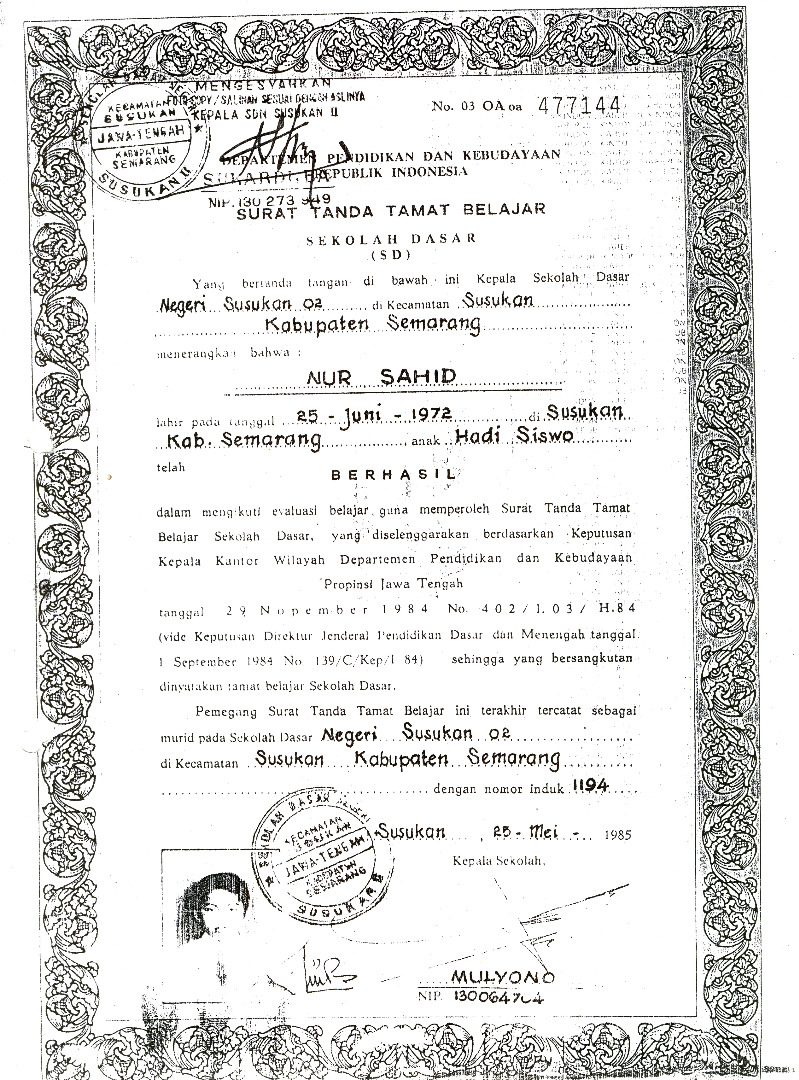 MENGESYAHKAN
FOTO COPY / SALINAN SESUAI DENGAN ASLINYA
KEPALA SDN SUSUKAN II
KECAMATAN
SUSUKAN
JAWA-TENGAH
KABUPATEN
SEMARANG
SUSUKAN II
No. 03 OA oa 477144
DEPARTEMEN PENDIDIKAN DAN KEBUDAYAAN
REPUBLIK INDONESIA
NIP. 130 273
SURAT TANDA TAMAT BELAJAR
SEKOLAH DASAR
(SD)
Yang bertanda tangan di bawah ini Kepala Sekolah Dasar
Negeri Susukan 02 di Kecamatan Susukan
Kabupaten Semarang
menerangkan bahwa :
NUR SAHID
lahir pada tanggal 25 - Juni - 1972 di Susukan
Kab. Semarang anak Hadi Siswo
telah
BERHASIL
dalam mengikuti evaluasi belajar guna memperoleh Surat Tanda Tamat
Belajar Sekolah Dasar, yang diselenggarakan berdasarkan Keputusan
Kepala Kantor Wilayah Departemen Pendidikan dan Kebudayaan
Propinsi Jawa Tengah
tanggal 29 Nopember 1984 No. 402/I.03/H.84
(vide Keputusan Direktur Jenderal Pendidikan Dasar dan Menengah tanggal
1 September 1984 No 139/C/Kep/I 84) sehingga yang bersangkutan
dinyatakan tamat belajar Sekolah Dasar.
Pemegang Surat Tanda Tamat Belajar ini terakhir tercatat sebagai
murid pada Sekolah Dasar Negeri Susukan 02
di Kecamatan Susukan Kabupaten Semarang
dengan nomor induk 1194
SEKOLAH DASAR NEGERI
KECAMATAN
SUSUKAN
JAWA-TENGAH
KABUPATEN
SEMARANG
Susukan, 25 - Mei - 1985
Kepala Sekolah,
MULYONO
NIP.